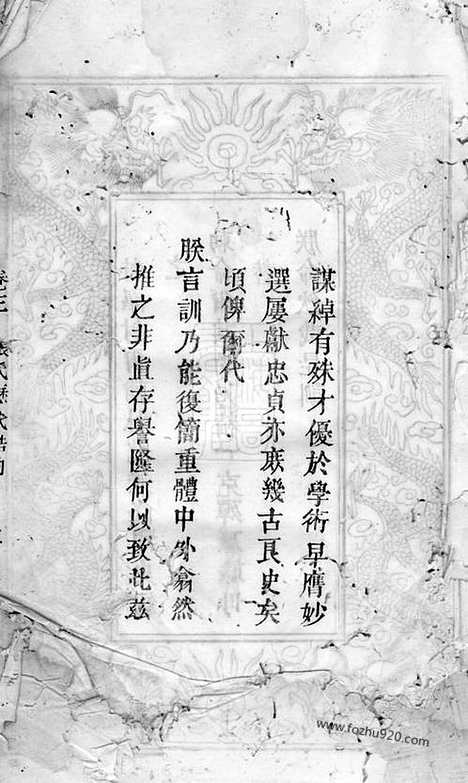 謀綽有殊才優於學術早膺妙
選屢獻忠貞亦庶幾古良史矣
頃俾爾代
朕言訓乃能復簡重體中外翕然
推之非真存譽隆何以致此茲
www.fozhu920.com